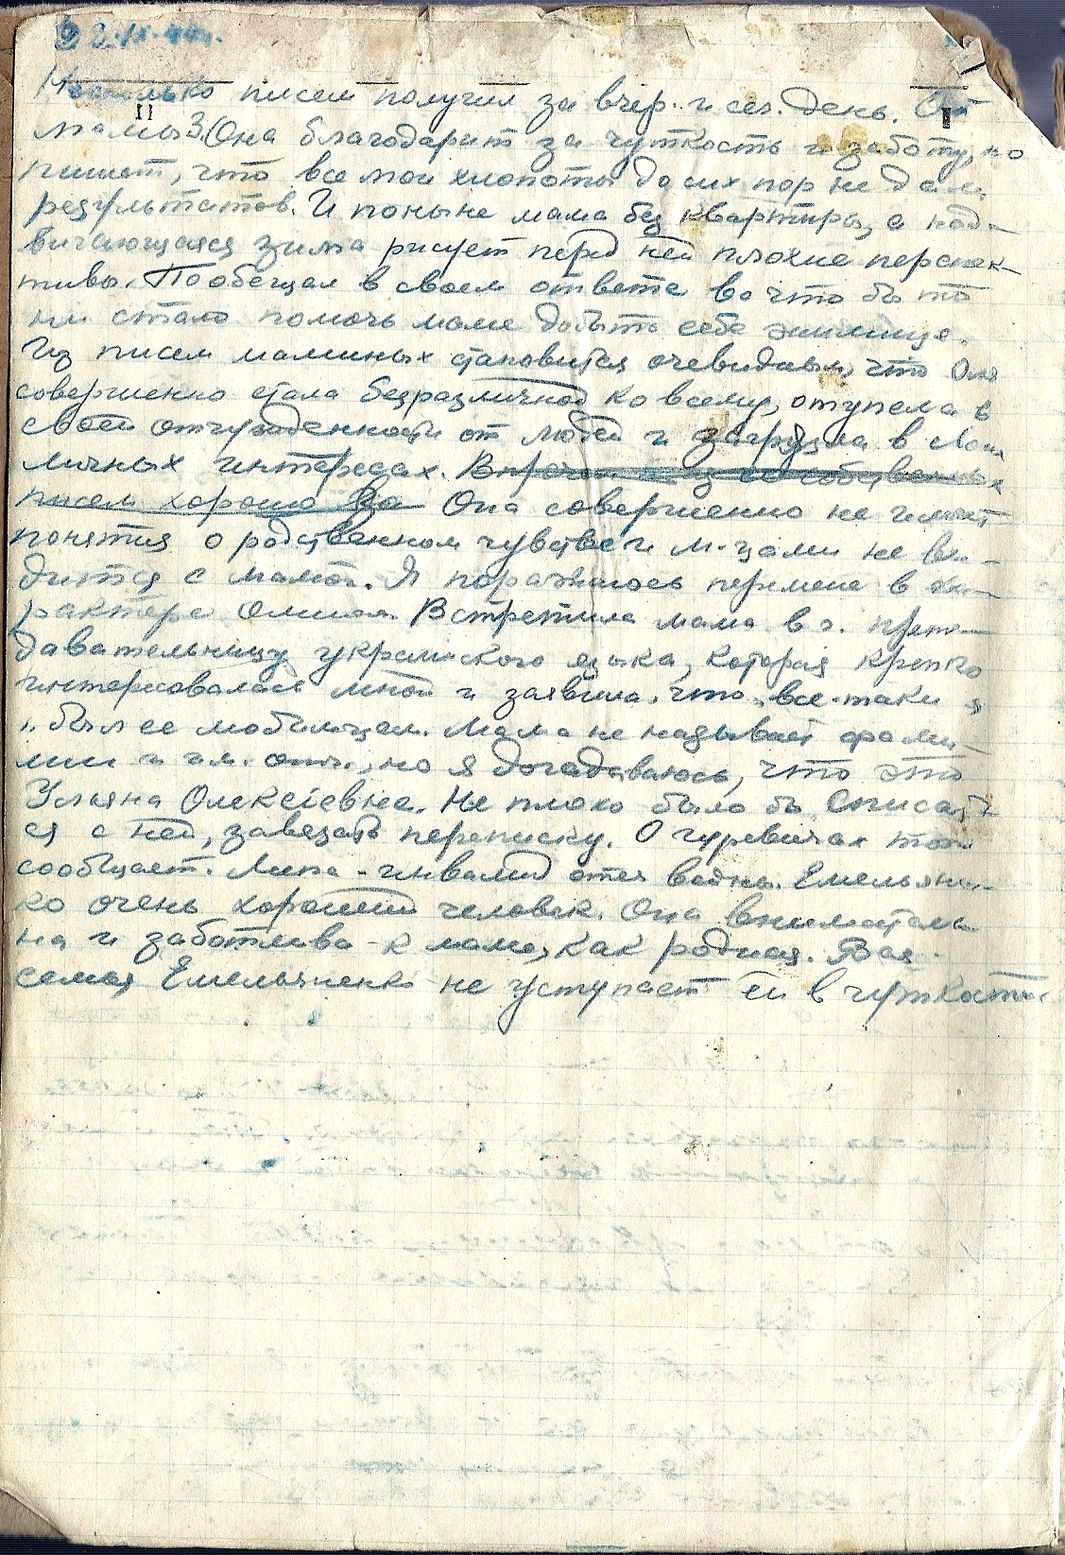 Несколько писем получил за вчер. и сег. день. От
мамы 3. Она благодарит за чуткость и заботу, но
пишет, что все мои хлопоты до сих пор не дали
результатов. И поныне мама без квартиры, а над-
вигающаяся зима рисует перед ней плохие перспек-
тивы. Пообещал в своем ответе во что бы то
ни стало помочь маме добыть себе жилище.
Из писем маминых становится очевидным, что Оля
совершенно стала безразличной ко всему, отупела в
своей отчужденности от людей и в
личных интересах. Впрочем из ее собственных
писем хорошо Она совершенно не имеет
понятия о родственном чувстве и м-цами не ви-
дится с мамой. Я поражаюсь перемене в ха-
рактере Олином. Встретила мама в г. препо-
давательницу украинского языка, которая крепко
интересовалась мной и заявила, что "все-таки я
был ее любимцем. Мама не называет фами-
лии и им. отч., но я догадываюсь, что это
Ульяна Олексіевна. Не плохо было бы списать
ся с ней, завязать переписку. О Гуревичах тоже
сообщает. Липа - инвалид отеч войны. Емельянен-
ко очень хороший человек. Она внимательн
на и заботлива к маме, как родная. Вся
семья Емельяненко не уступает ей в чуткости.
II
I